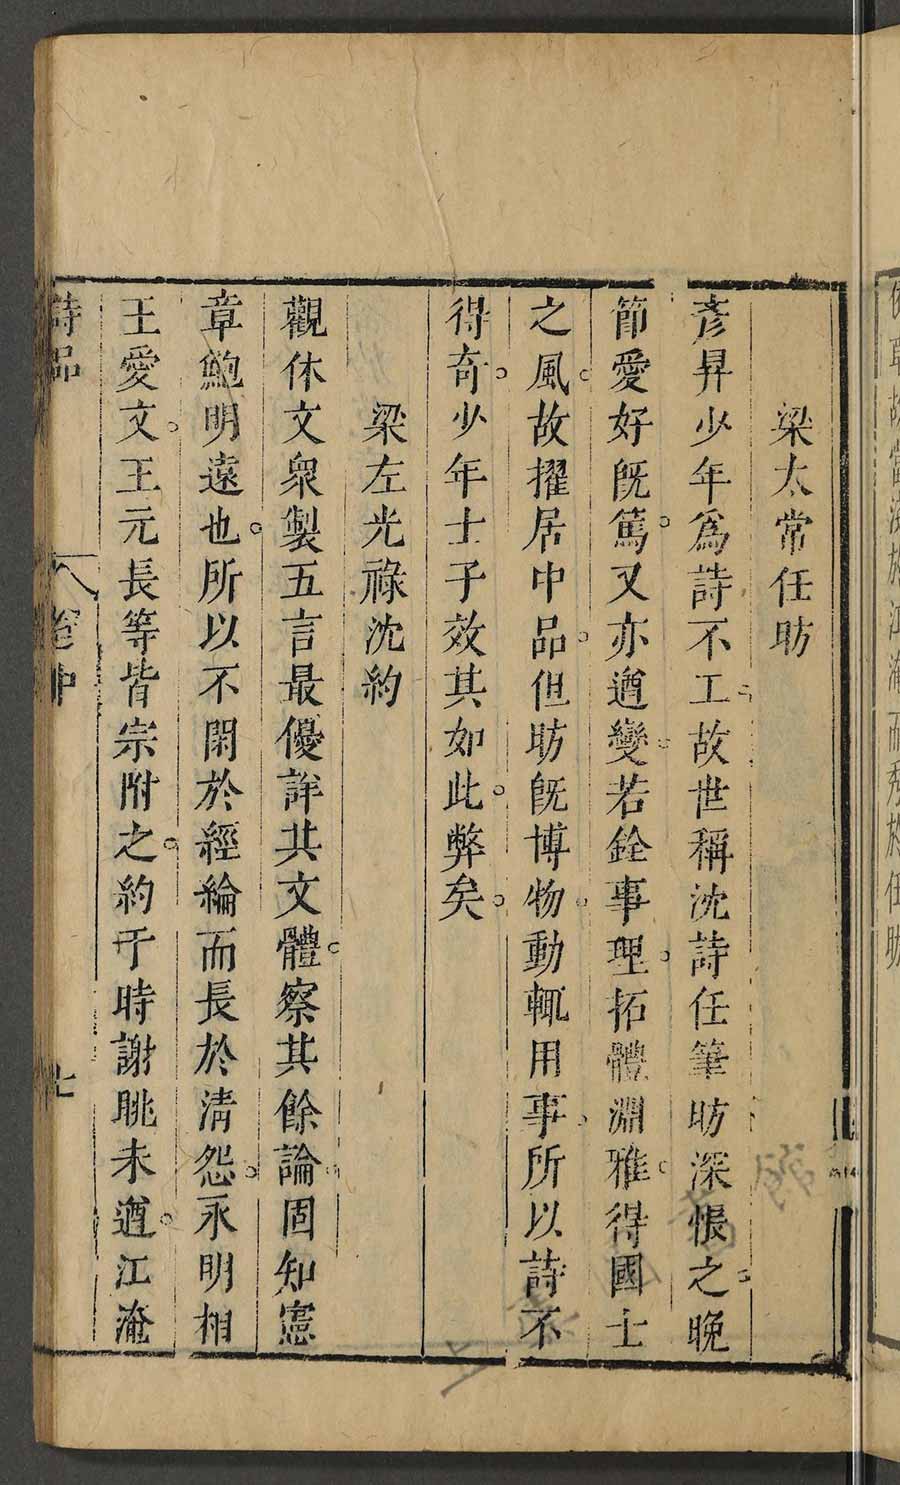 梁太常任昉
彥昇少年爲詩不工故世稱沈詩任筆昉深恨之晚
節愛好旣篤又亦遒變若銓事理拓體淵雅得國士
之風故擢居中品但昉旣博物動輒用事所以詩不
得奇少年士子效其如此弊矣
梁左光祿沈約
觀休文衆製五言最優詳其文體察其餘論固知憲
章鮑明遠也所以不閑於經綸而長於淸怨永明相
王愛文王元長等皆宗附之約于時謝眺未遒江淹
詩品 卷中 七